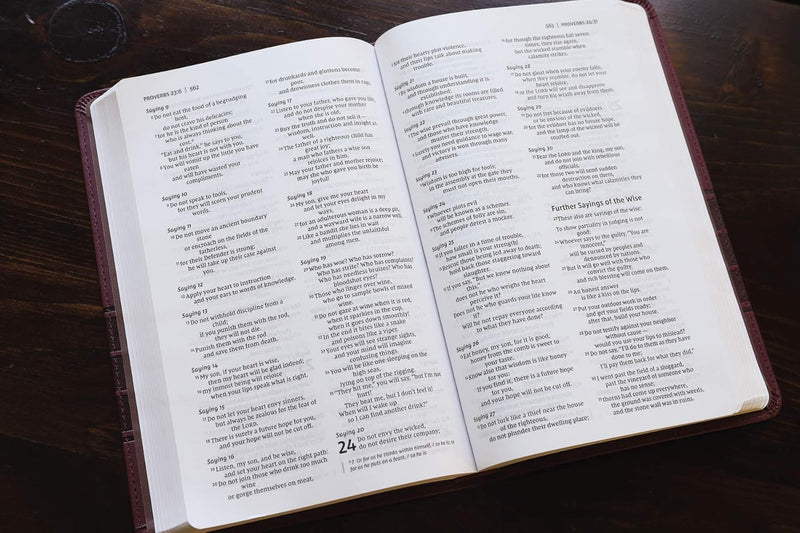 PROVERBS 23:6 | 562
Saying 9
6 Do not eat the food of a begrudging
host,
do not crave his delicacies;
7 for he is the kind of person
who is always thinking about the
cost.a
"Eat and drink," he says to you,
but his heart is not with you.
8 You will vomit up the little you have
eaten
and will have wasted your
compliments.
Saying 10
9 Do not speak to fools,
for they will scorn your prudent
words.
Saying 11
10 Do not move an ancient boundary
stone
or encroach on the fields of the
fatherless,
11 for their Defender is strong;
he will take up their case against
you.
Saying 12
12 Apply your heart to instruction
and your ears to words of knowledge.
Saying 13
13 Do not withhold discipline from a
child;
if you punish them with the rod,
they will not die.
14 Punish them with the rod
and save them from death.
Saying 14
15 My son, if your heart is wise,
then my heart will be glad indeed;
16 my inmost being will rejoice
when your lips speak what is right.
Saying 15
17 Do not let your heart envy sinners,
but always be zealous for the fear of
the LORD.
18 There is surely a future hope for you,
and your hope will not be cut off.
Saying 16
19 Listen, my son, and be wise,
and set your heart on the right path:
20 Do not join those who drink too much
wine
or gorge themselves on meat,
21 for drunkards and gluttons become
poor,
and drowsiness clothes them in rags.
Saying 17
22 Listen to your father, who gave you life,
and do not despise your mother
when she is old.
23 Buy the truth and do not sell it—
wisdom, instruction and insight as
well.
24 The father of a righteous child has
great joy;
a man who fathers a wise son
rejoices in him.
25 May your father and mother rejoice;
may she who gave you birth be
joyful!
Saying 18
26 My son, give me your heart
and let your eyes delight in my
ways,
27 for an adulterous woman is a deep pit,
and a wayward wife is a narrow well.
28 Like a bandit she lies in wait
and multiplies the unfaithful
among men.
Saying 19
29 Who has woe? Who has sorrow?
Who has strife? Who has complaints?
Who has needless bruises? Who has
bloodshot eyes?
30 Those who linger over wine,
who go to sample bowls of mixed
wine.
31 Do not gaze at wine when it is red,
when it sparkles in the cup,
when it goes down smoothly!
32 In the end it bites like a snake
and poisons like a viper.
33 Your eyes will see strange sights,
and your mind will imagine
confusing things.
34 You will be like one sleeping on the
high seas,
lying on top of the rigging.
35 "They hit me," you will say, "but I'm not
hurt!
They beat me, but I don't feel it!
When will I wake up
so I can find another drink?"
Saying 20
24 Do not envy the wicked,
do not desire their company;
a 7 Or for as he thinks within himself, / so he is; or
for as he puts on a feast, / so he is
563 | PROVERBS 24:31
2 for their hearts plot violence,
and their lips talk about making
trouble.
Saying 21
3 By wisdom a house is built,
and through understanding it is
established;
4 through knowledge its rooms are filled
with rare and beautiful treasures.
Saying 22
5 The wise prevail through great power,
and those who have knowledge
muster their strength.
6 Surely you need guidance to wage war,
and victory is won through many
advisers.
Saying 23
7 Wisdom is too high for fools;
in the assembly at the gate they
must not open their mouths.
Saying 24
8 Whoever plots evil
will be known as a schemer.
9 The schemes of folly are sin,
and people detest a mocker.
Saying 25
10 If you falter in a time of trouble,
how small is your strength!
11 Rescue those being led away to death;
hold back those staggering toward
slaughter.
12 If you say, "But we knew nothing about
this,"
does not he who weighs the heart
perceive it?
Does not he who guards your life know
it?
Will he not repay everyone according
to what they have done?
Saying 26
13 Eat honey, my son, for it is good;
honey from the comb is sweet to
your taste.
14 Know also that wisdom is like honey
for you:
If you find it, there is a future hope
for you,
and your hope will not be cut off.
Saying 27
15 Do not lurk like a thief near the house
of the righteous,
do not plunder their dwelling place;
16 for though the righteous fall seven
times, they rise again,
but the wicked stumble when
calamity strikes.
Saying 28
17 Do not gloat when your enemy falls;
when they stumble, do not let your
heart rejoice,
18 or the LORD will see and disapprove
and turn his wrath away from them.
Saying 29
19 Do not fret because of evildoers
or be envious of the wicked,
20 for the evildoer has no future hope,
and the lamp of the wicked will be
snuffed out.
Saying 30
21 Fear the LORD and the king, my son,
and do not join with rebellious
officials,
22 for those two will send sudden
destruction on them,
and who knows what calamities they
can bring?
Further Sayings of the Wise
23 These also are sayings of the wise:
To show partiality in judging is not
good:
24 Whoever says to the guilty, "You are
innocent,"
will be cursed by peoples and
denounced by nations.
25 But it will go well with those who
convict the guilty,
and rich blessing will come on them.
26 An honest answer
is like a kiss on the lips.
27 Put your outdoor work in order
and get your fields ready;
after that, build your house.
28 Do not testify against your neighbor
without cause—
would you use your lips to mislead?
29 Do not say, "I'll do to them as they have
done to me;
I'll pay them back for what they did."
30 I went past the field of a sluggard,
past the vineyard of someone who
has no sense;
31 thorns had come up everywhere,
the ground was covered with weeds,
and the stone wall was in ruins.